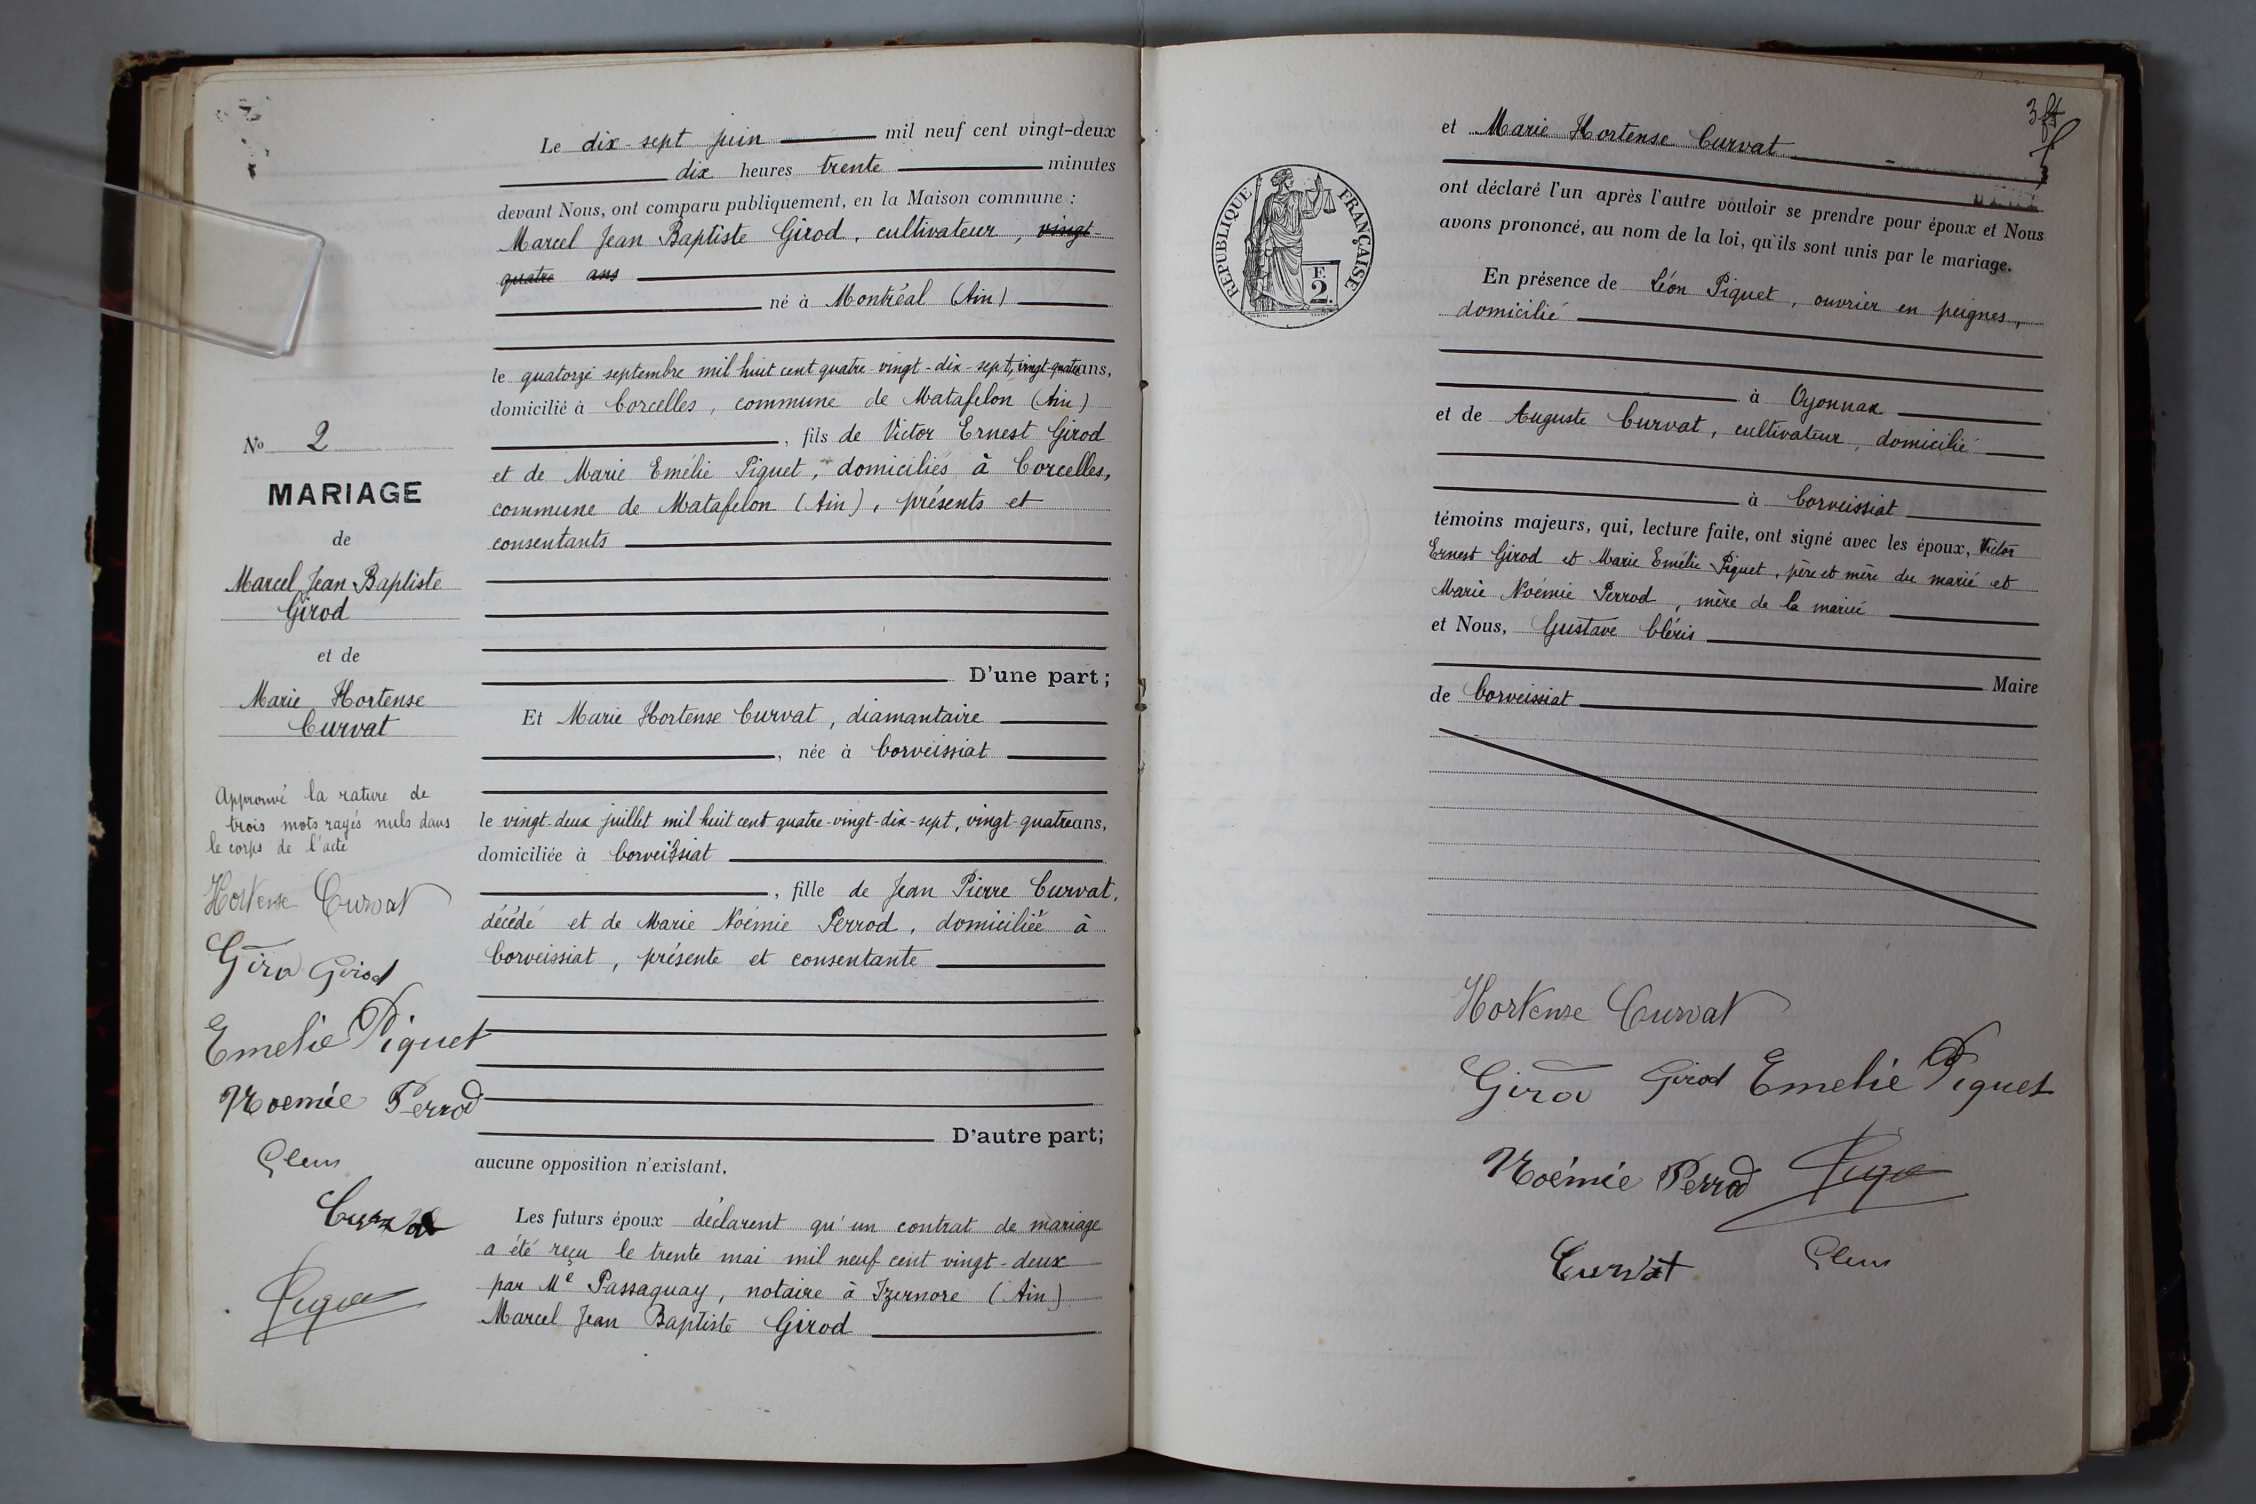 Le dix-sept juin mil neuf cent vingt-deux
dix heures trente minutes
devant Nous, ont comparu publiquement, en la Maison commune :
Marcel Jean Baptiste Girod, cultivateur, vingt-
quatre ans
né à Montréal (Ain)
le quatorze septembre mil huit cent quatre-vingt-dix-sept, vingt-quatre ans,
domicilié à Corcelles, commune de Matafelon (Ain)
, fils de Victor Ernest Girod
et de Marie Emélie Piquet, domiciliés à Corcelles,
commune de Matafelon (Ain), présents et
consentants
D'une part;
Et Marie Hortense Curvat, diamantaire
, née à Corveissiat
le vingt-deux juillet mil huit cent quatre-vingt-dix-sept, vingt-quatre ans,
domiciliée à Corveissiat
, fille de Jean Pierre Curvat,
décédé et de Marie Noémie Perrod, domiciliée à
Corveissiat, présente et consentante
D'autre part;
aucune opposition n'existant.
Les futurs époux déclarent qu'un contrat de mariage
a été reçu le trente mai mil neuf cent vingt-deux
par Me Passaquay, notaire à Izernore (Ain)
Marcel Jean Baptiste Girod
No 2
MARIAGE
de
Marcel Jean Baptiste
Girod
et de
Marie Hortense
Curvat
Approuvé la rature de
trois mots rayés nuls dans
le corps de l'acte
Hortense Curvat
Girod Girod
Emelie Piquet
Noemie Perrod
Curvat
3
et Marie Hortense Curvat
ont déclaré l'un après l'autre vouloir se prendre pour époux et Nous
avons prononcé, au nom de la loi, qu'ils sont unis par le mariage.
En présence de Léon Piquet, ouvrier en peignes,
domicilié
à Oyonnax
et de Auguste Curvat, cultivateur, domicilié
à Corveissiat
témoins majeurs, qui, lecture faite, ont signé avec les époux, Victor
Ernest Girod et Marie Emélie Piquet, père et mère du marié et
Marie Noémie Perrod, mère de la mariée
et Nous, Gustave Cléris
Maire
de Corveissiat
REPUBLIQUE FRANÇAISE
F.
2.
Hortense Curvat
Girod Girod Emelie Piquet
Noémie Perrod
Curvat